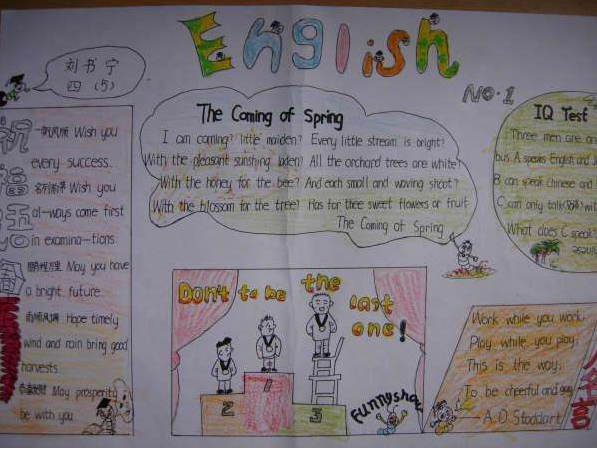 English
NO.1
刘书宁
四(5)
祝
福
语
一帆风顺 Wish you
every success.
名列前茅 Wish you
al-ways come first
in examina-tions.
鹏程万里 May you have
a bright future.
Hope timely
wind and rain bring good
harvests.
May prosperity
be with you
The Coming of Spring
I am coming? little maiden? Every little stream is bright?
With the pleasant sunshing laden? All the orchard trees are white?
With the honey for the bee? And each small and waving shoot?
With the blossom for the tree? Has for thee sweet flowers or fruit
The Coming of Spring
IQ Test
Three men are on
bus. A speaks English and
B can speak chinese and
C can only talk
What does C speak
Don't to be the last one!
1
2
3
Funnyshow
Work while you work;
Play while you play;
This is the way;
To be cheerful and gay
—A.D.Stoddart